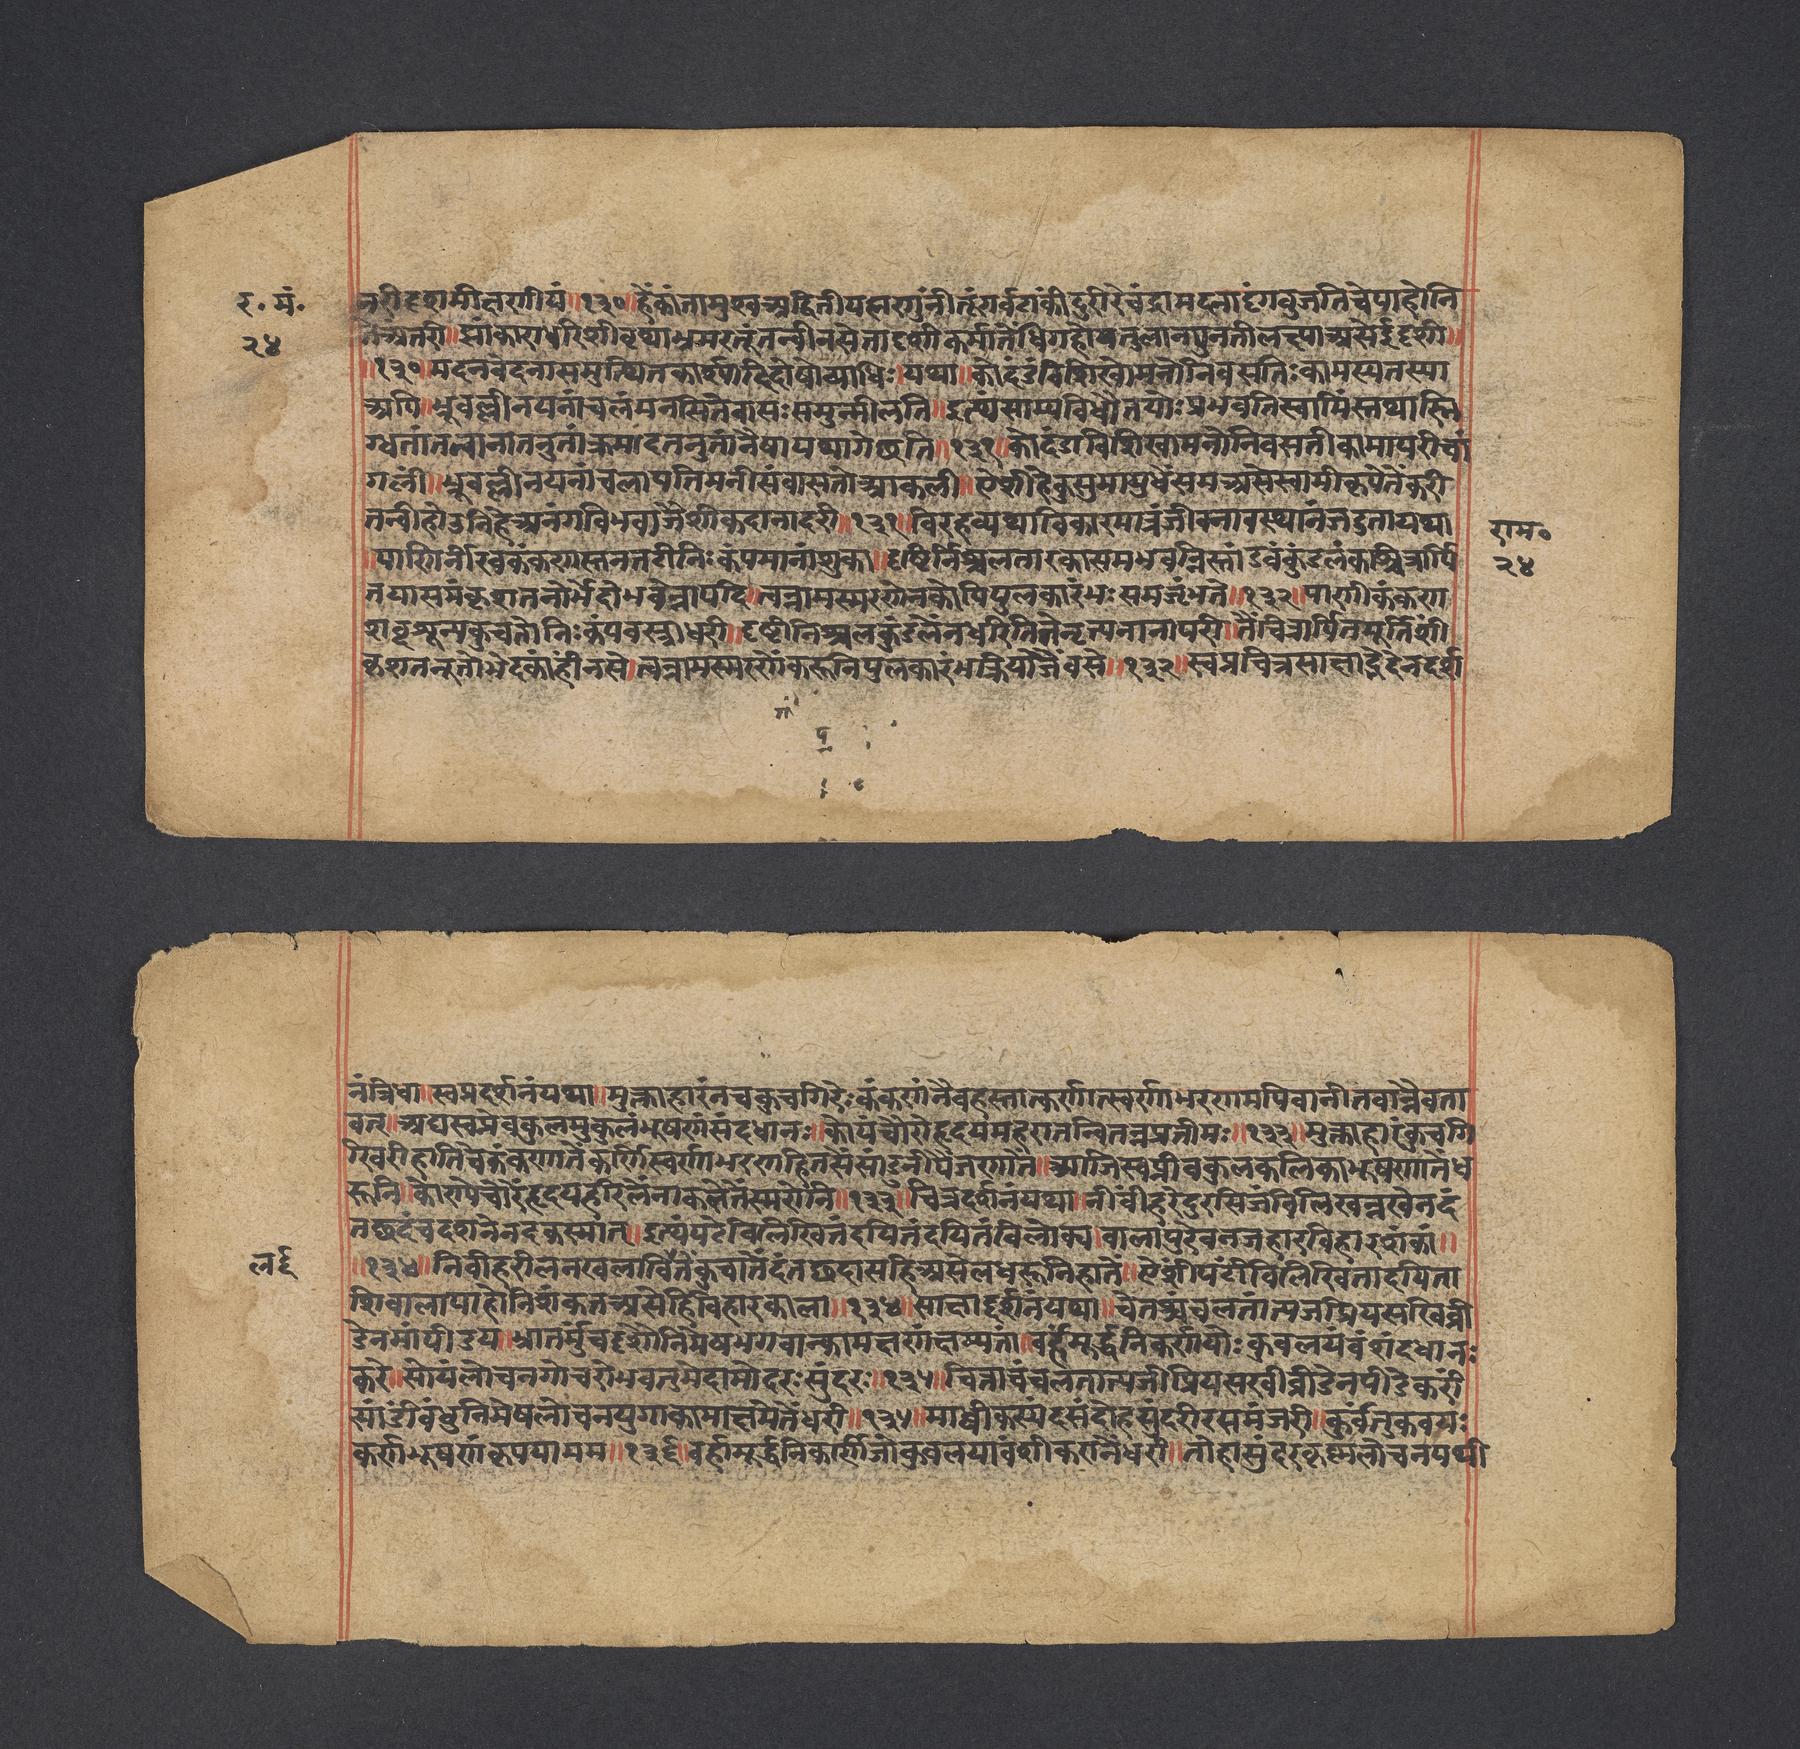 र. मं.
२४
तरीदृशमीलणीयं॥१३०॥हेंकांतामुखअद्वितीयलक्षणुंनीतूंगर्वशंकीदुरीरेचंद्रामदनादृंगवुजतिचेपाहोनि
नेअतरी॥सांकाराधरिशीवृथाभ्रमरतूंतन्वीनसेतादृशीकर्मातेंधिगहोयतुलानपुनतीलत्प्याअसेईदृशी॥
॥१३०॥मदनवेदनासमुत्थितकार्श्यादिदोषोव्याधिः॥यथा॥कोदंडंविशिखोमनोनिवसतिःकामस्यतस्या
अपि॥भ्रूवल्लीनयनांचलंमनसितेवासःसमुन्मीलति॥इत्थंसाम्यविधौतयोःप्रभवतिस्वामिंस्तथास्नि
ग्धतांतन्वानातनुतांक्रमादतनुतांनैषायथागच्छति॥१३१॥कोदंडाविशिखामनोनिवसतीकामापरीचां
गली॥भ्रूवल्लीनयनांचलापतिमनींसंवासतोआकली॥ऐशीहेकुसुमायुधेंसमअसेस्वामीकृपेतेंकरी
तन्वीहोउनिहेअनंगविभवाजैशीकदानादरी॥१३१॥विरहव्यथाविकारमात्रंजीवनावस्थानंजडतायथा
॥पाणिर्नीरवकंकणःस्तनतटीनिःकंपमानांशुका॥दृष्टिर्निश्चलतारकासमभवन्निस्तांडवंकुंडलंकश्चित्रार्पि
तयासमंकृशतनोर्भेदोभवेन्नोयदि॥त्वन्नामस्मरणेनकोपिपुलकारंभःसमजृंभते॥१३२॥पाणीकंकण
शब्दशून्यकुचतोनिःकंपवस्त्राधरी॥दृष्टीनिश्चलकुंडलेंनधरितितेनृत्यनानापरी॥तेंचित्रार्पितमूर्तिशी
कृशतनूतोभेदकांहींनसे॥त्वन्नामस्मरणेंकरूनिपुलकारंभक्रियाजैंवसे॥१३२॥स्वप्नचित्रसाक्षाद्भेदेनदर्श
राम॰
२४
नंत्रिधा॥स्वप्नदर्शनंयथा॥मुक्ताहारंनचकुचगिरेःकंकणंनैवहस्तात्कर्णात्स्वर्णाभरणमपिवानीतवान्नैवता
वत्॥अद्यस्वप्नेवकुलमुकुलंभूषणंसंदधानः॥कोयंचौरोहृदयमहरत्तन्वितन्नप्रतीमः॥१३३॥मुक्ताहारकुचगि
गिवरीहातिचेकंकणातेंकर्णिस्वर्णाभरणहितसेंसांडुनीयेंजणानें॥आजिस्वप्नींवकुलकलिकाभूषणातेंध
रूनि॥कोणयेचोरेंहृदयहरिलेंनाकलेतेंस्मरोनि॥१३३॥चित्रदर्शनंयथा॥नीवीहरेदुरसिजंविलिखेन्नखेनदं
तच्छदंचदशनेनदकस्मात्॥इत्थंपटेविलिखितंदयितंदयितंविलोक्य॥बालापुरेवनजहारविहारशंकां॥
॥१३४॥निवीहरीलनखलाविंतंकुचातेंदंतच्छदासहिअसेलधरूनिहातें॥ऐशीपटींविलिखितादयिता
शिबालापाहोनिशंकतअसेहिविहारकाला॥१३४॥साक्षाद्दर्शनंयथा॥चेतश्चंचलतांत्यजप्रियसखिव्री
डेनमांपीडय॥भ्रातर्मुंचदृशौनिमेषभगवान्कामक्षणंक्षम्यतां॥बर्हंमूर्द्ध्निकर्णयोःकुवलयंवंशंदधानः
करे॥सोयंलोचनगोचरोभवतुमेदामोदरःसुंदरः॥१३५॥चित्तात्वंचलतात्यजीप्रियसखीव्रीडेनपीडेकरीं
सांडींबंधुनिमेषलोचनयुगाकामाक्षमेतेंधरी॥१३५॥माध्वीकस्यंदसंदोहसुंदरीरसमंजरी॥कुर्वंतुकवयः
कर्णभूषणंकृपयामम॥१३६॥बर्हामूर्द्ध्निकर्णिजोकुवलयावंशीकरानेंधरी॥तोहासुंदरकृष्णलोचनपथी
लर्दृ